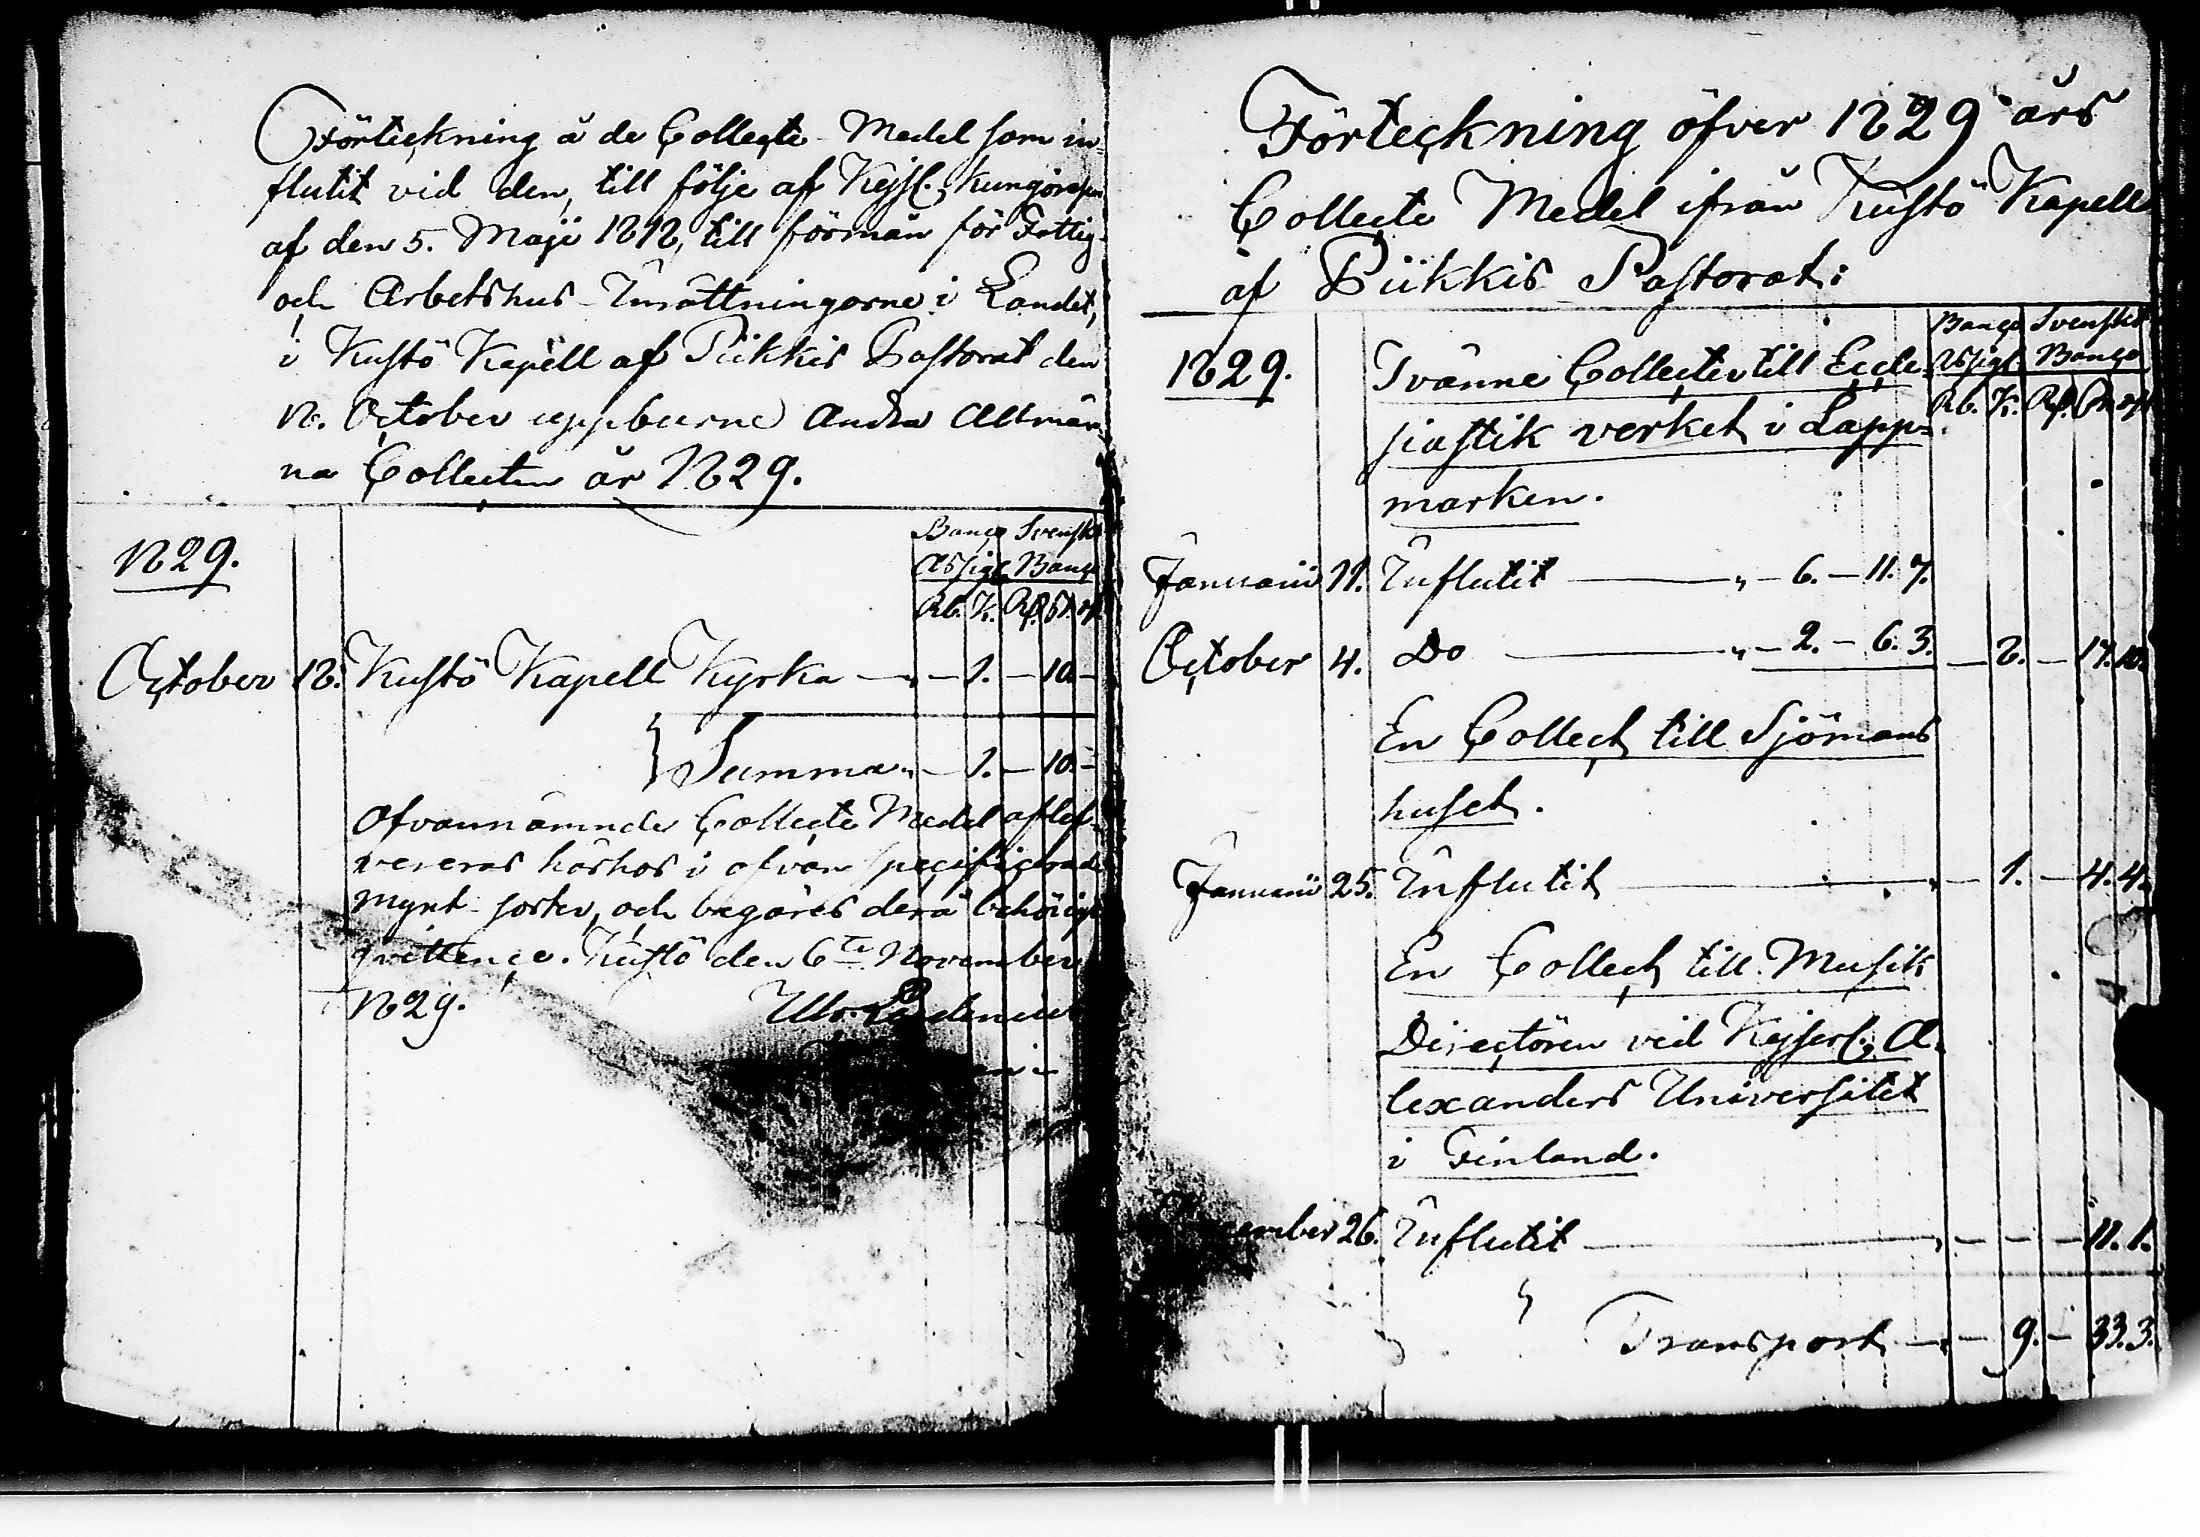 Förteckning å de Collecte Medel som in-
flutit vid den, till följe af Kejsl. Kungörelsen
af den 5. Maji 1818, till förmån för Fattig-
och Arbetshus-Inrättningarne i Landet,
i Kustö Kapell af Piikkis Pastorat den
18. October uppburne Andra Allmän-
na Collecten år 1829.
1829.
Banco Svenskt
Assigt. Banco
Rb. K. Rd. sk. rst.
October 18. Kustö Kapell Kyrka — „ — 1. — 10. —
Summa „ — 1. — 10. —
Ofvannämnde Collecte Medel aflef-
vereras härhos i ofvan specificerade
Mynt-sorter, och begäres derå behörigt
qvittence. Kustö den 6te November
1829.
Förteckning öfver 1829 års
Collecte Medel ifrån Kustö Kapell
af Piikkis Pastorat:
Banco Svenskt
Assigt. Banco
Rb. K. Rd. sk. rst.
1829. Tvänne Collecter till Eccle-
siastik verket i Lapp-
marken.
Januarii 11. Influtit — „ — 6. — 11. 7.
October 4. Do — „ — 2. — 6. 3. — 8. — 17. 10.
En Collect till Sjömans
huset.
Januarii 25. Influtit — „ — 1. — 4. 4.
En Collect till Musik
Directören vid Kejserl. A-
lexanders Universitet
i Finland.
26. Influtit — „ — — — 11. 1.
Transport — „ — 9. — 33. 3.